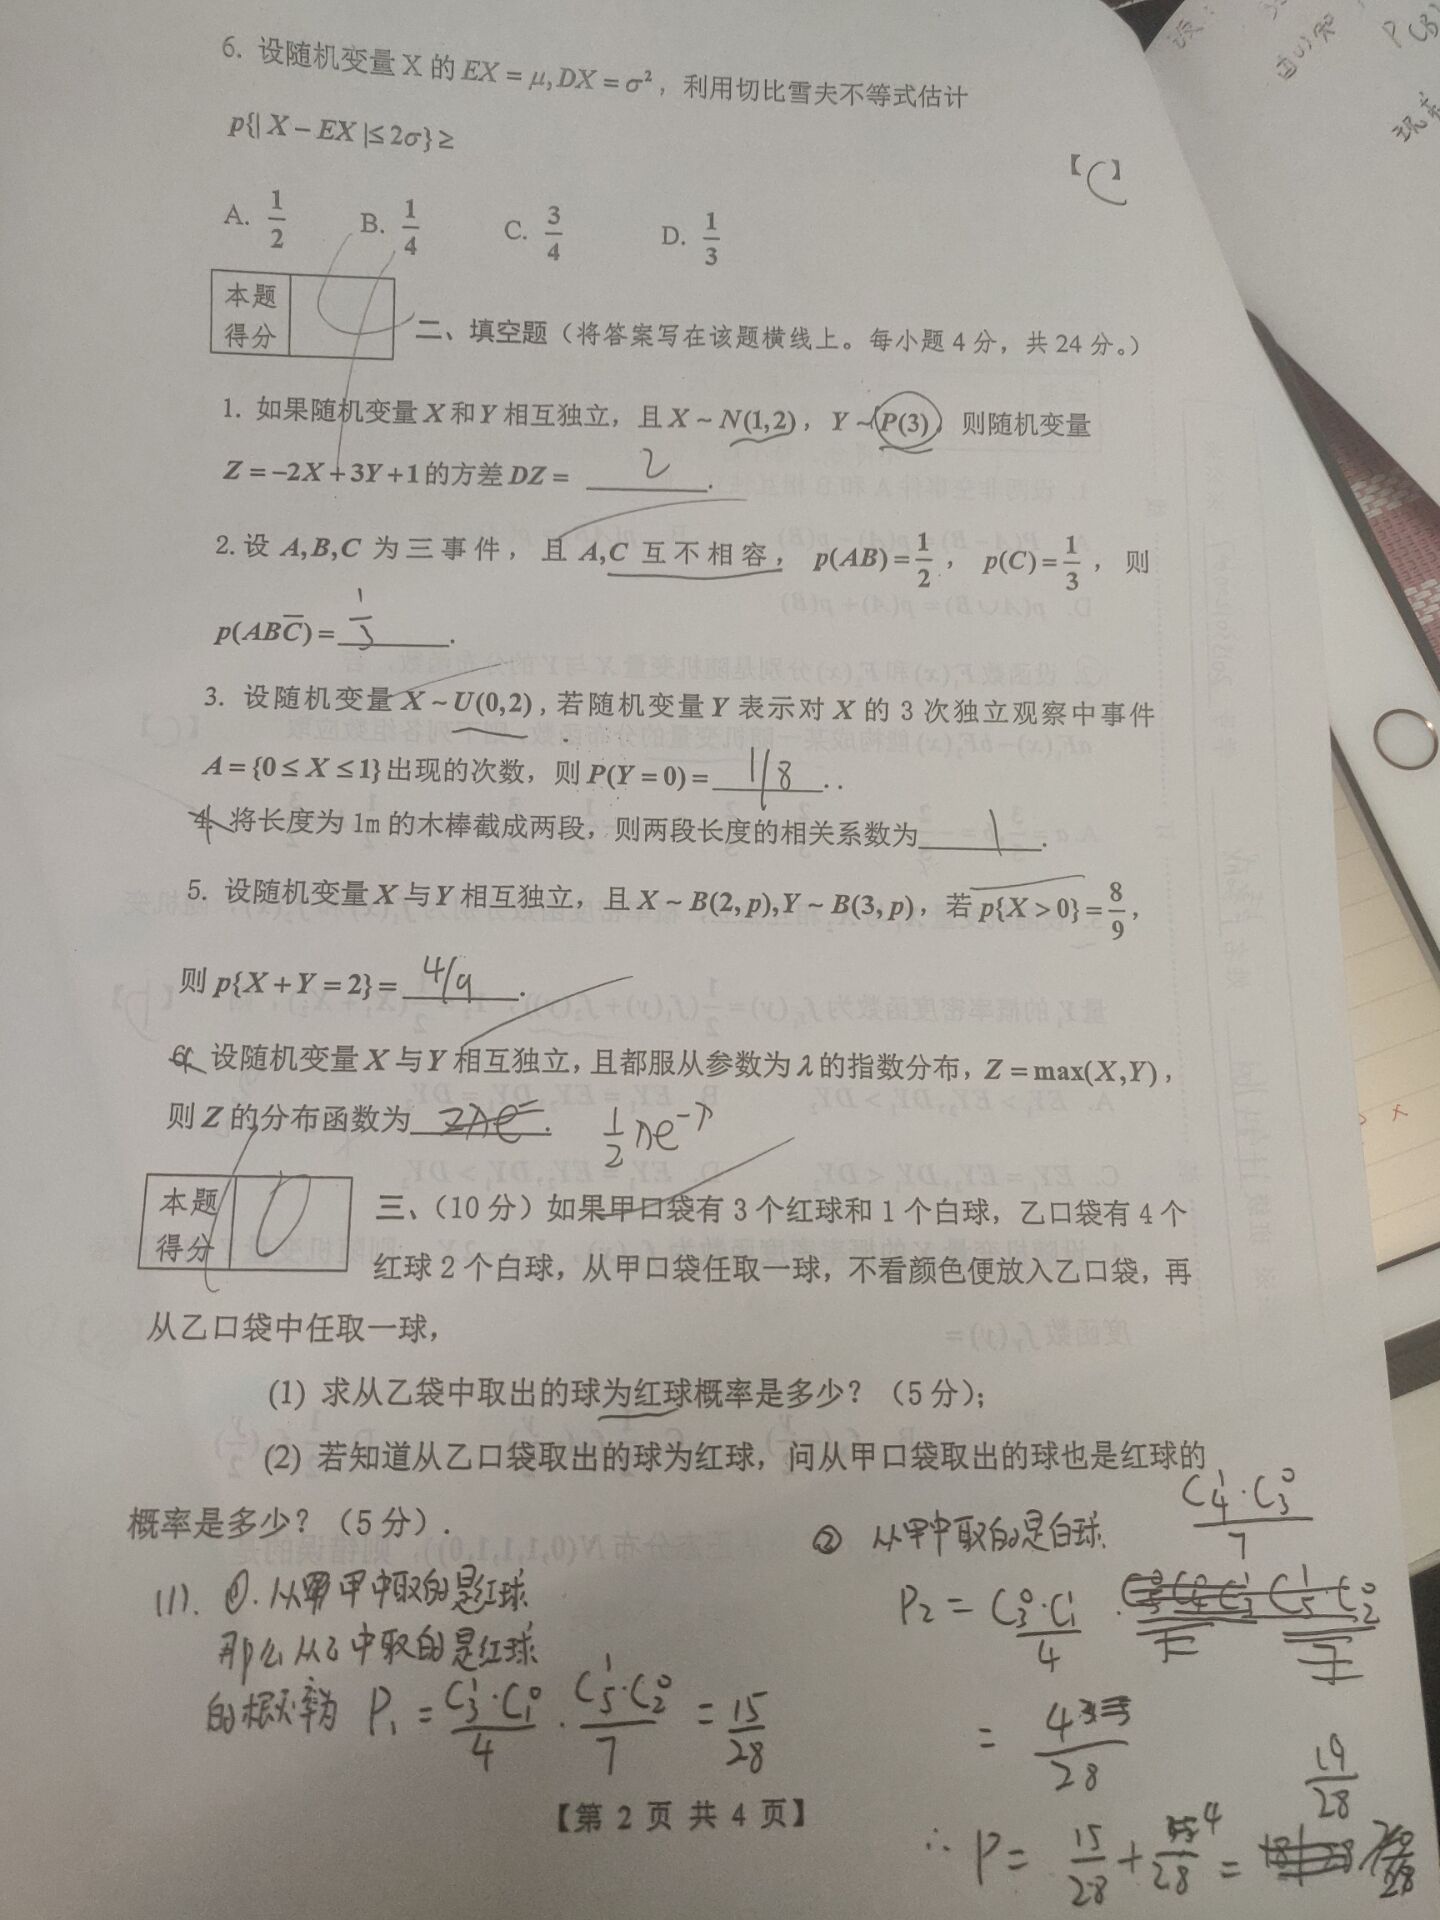 6. 设随机变量 X 的 EX = μ, DX = σ², 利用切比雪夫不等式估计
p{| X − EX |≤ 2σ} ≥
【C】
A. 1/2 B. 1/4 C. 3/4 D. 1/3
本题得分
二、填空题（将答案写在该题横线上。每小题 4 分，共 24 分。）
1. 如果随机变量 X 和 Y 相互独立，且 X ~ N(1,2)，Y ~ P(3)，则随机变量
Z = −2X + 3Y + 1 的方差 DZ = 2.
2. 设 A,B,C 为三事件，且 A,C 互不相容，p(AB) = 1/2，p(C) = 1/3，则
p(ABC̅) = 1/3.
3. 设随机变量 X ~ U(0,2)，若随机变量 Y 表示对 X 的 3 次独立观察中事件
A = {0 ≤ X ≤ 1} 出现的次数，则 P(Y = 0) = 1/8..
4. 将长度为 1m 的木棒截成两段，则两段长度的相关系数为 1.
5. 设随机变量 X 与 Y 相互独立，且 X ~ B(2, p), Y ~ B(3, p)，若 p{X > 0} = 8/9，
则 p{X + Y = 2} = 4/9.
6. 设随机变量 X 与 Y 相互独立，且都服从参数为 λ 的指数分布，Z = max(X,Y)，
则 Z 的分布函数为 . 1/2 λe^−λ
本题得分
三、（10 分）如果甲口袋有 3 个红球和 1 个白球，乙口袋有 4 个
红球 2 个白球，从甲口袋任取一球，不看颜色便放入乙口袋，再
从乙口袋中任取一球，
(1) 求从乙袋中取出的球为红球概率是多少？（5 分）；
(2) 若知道从乙口袋取出的球为红球，问从甲口袋取出的球也是红球的
概率是多少？（5 分）.
(1). ①. 从甲中取的是红球
那么从乙中取的是红球
的概率为 P₁ = C₃¹·C₁⁰/4 · C₅¹·C₂⁰/7 = 15/28
② 从甲中取的是白球. C₄¹·C₃⁰/7
P₂ = C₃⁰·C₁¹/4 ·
= 4/28
19/28
∴ P = 15/28 + 4/28 =
【第 2 页 共 4 页】